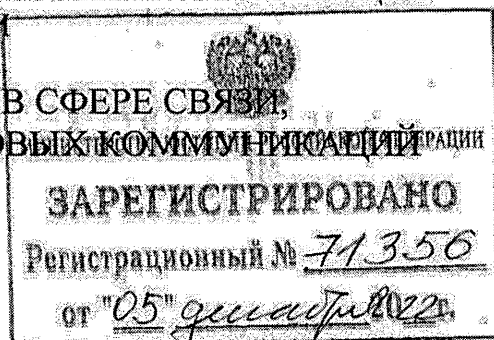 В СФЕРЕ СВЯЗИ,
ОВЫХ КОММУНИКАЦИЙ
ЗАРЕГИСТРИРОВАНО
Регистрационный № 71356
от "05" декабря 2022г.